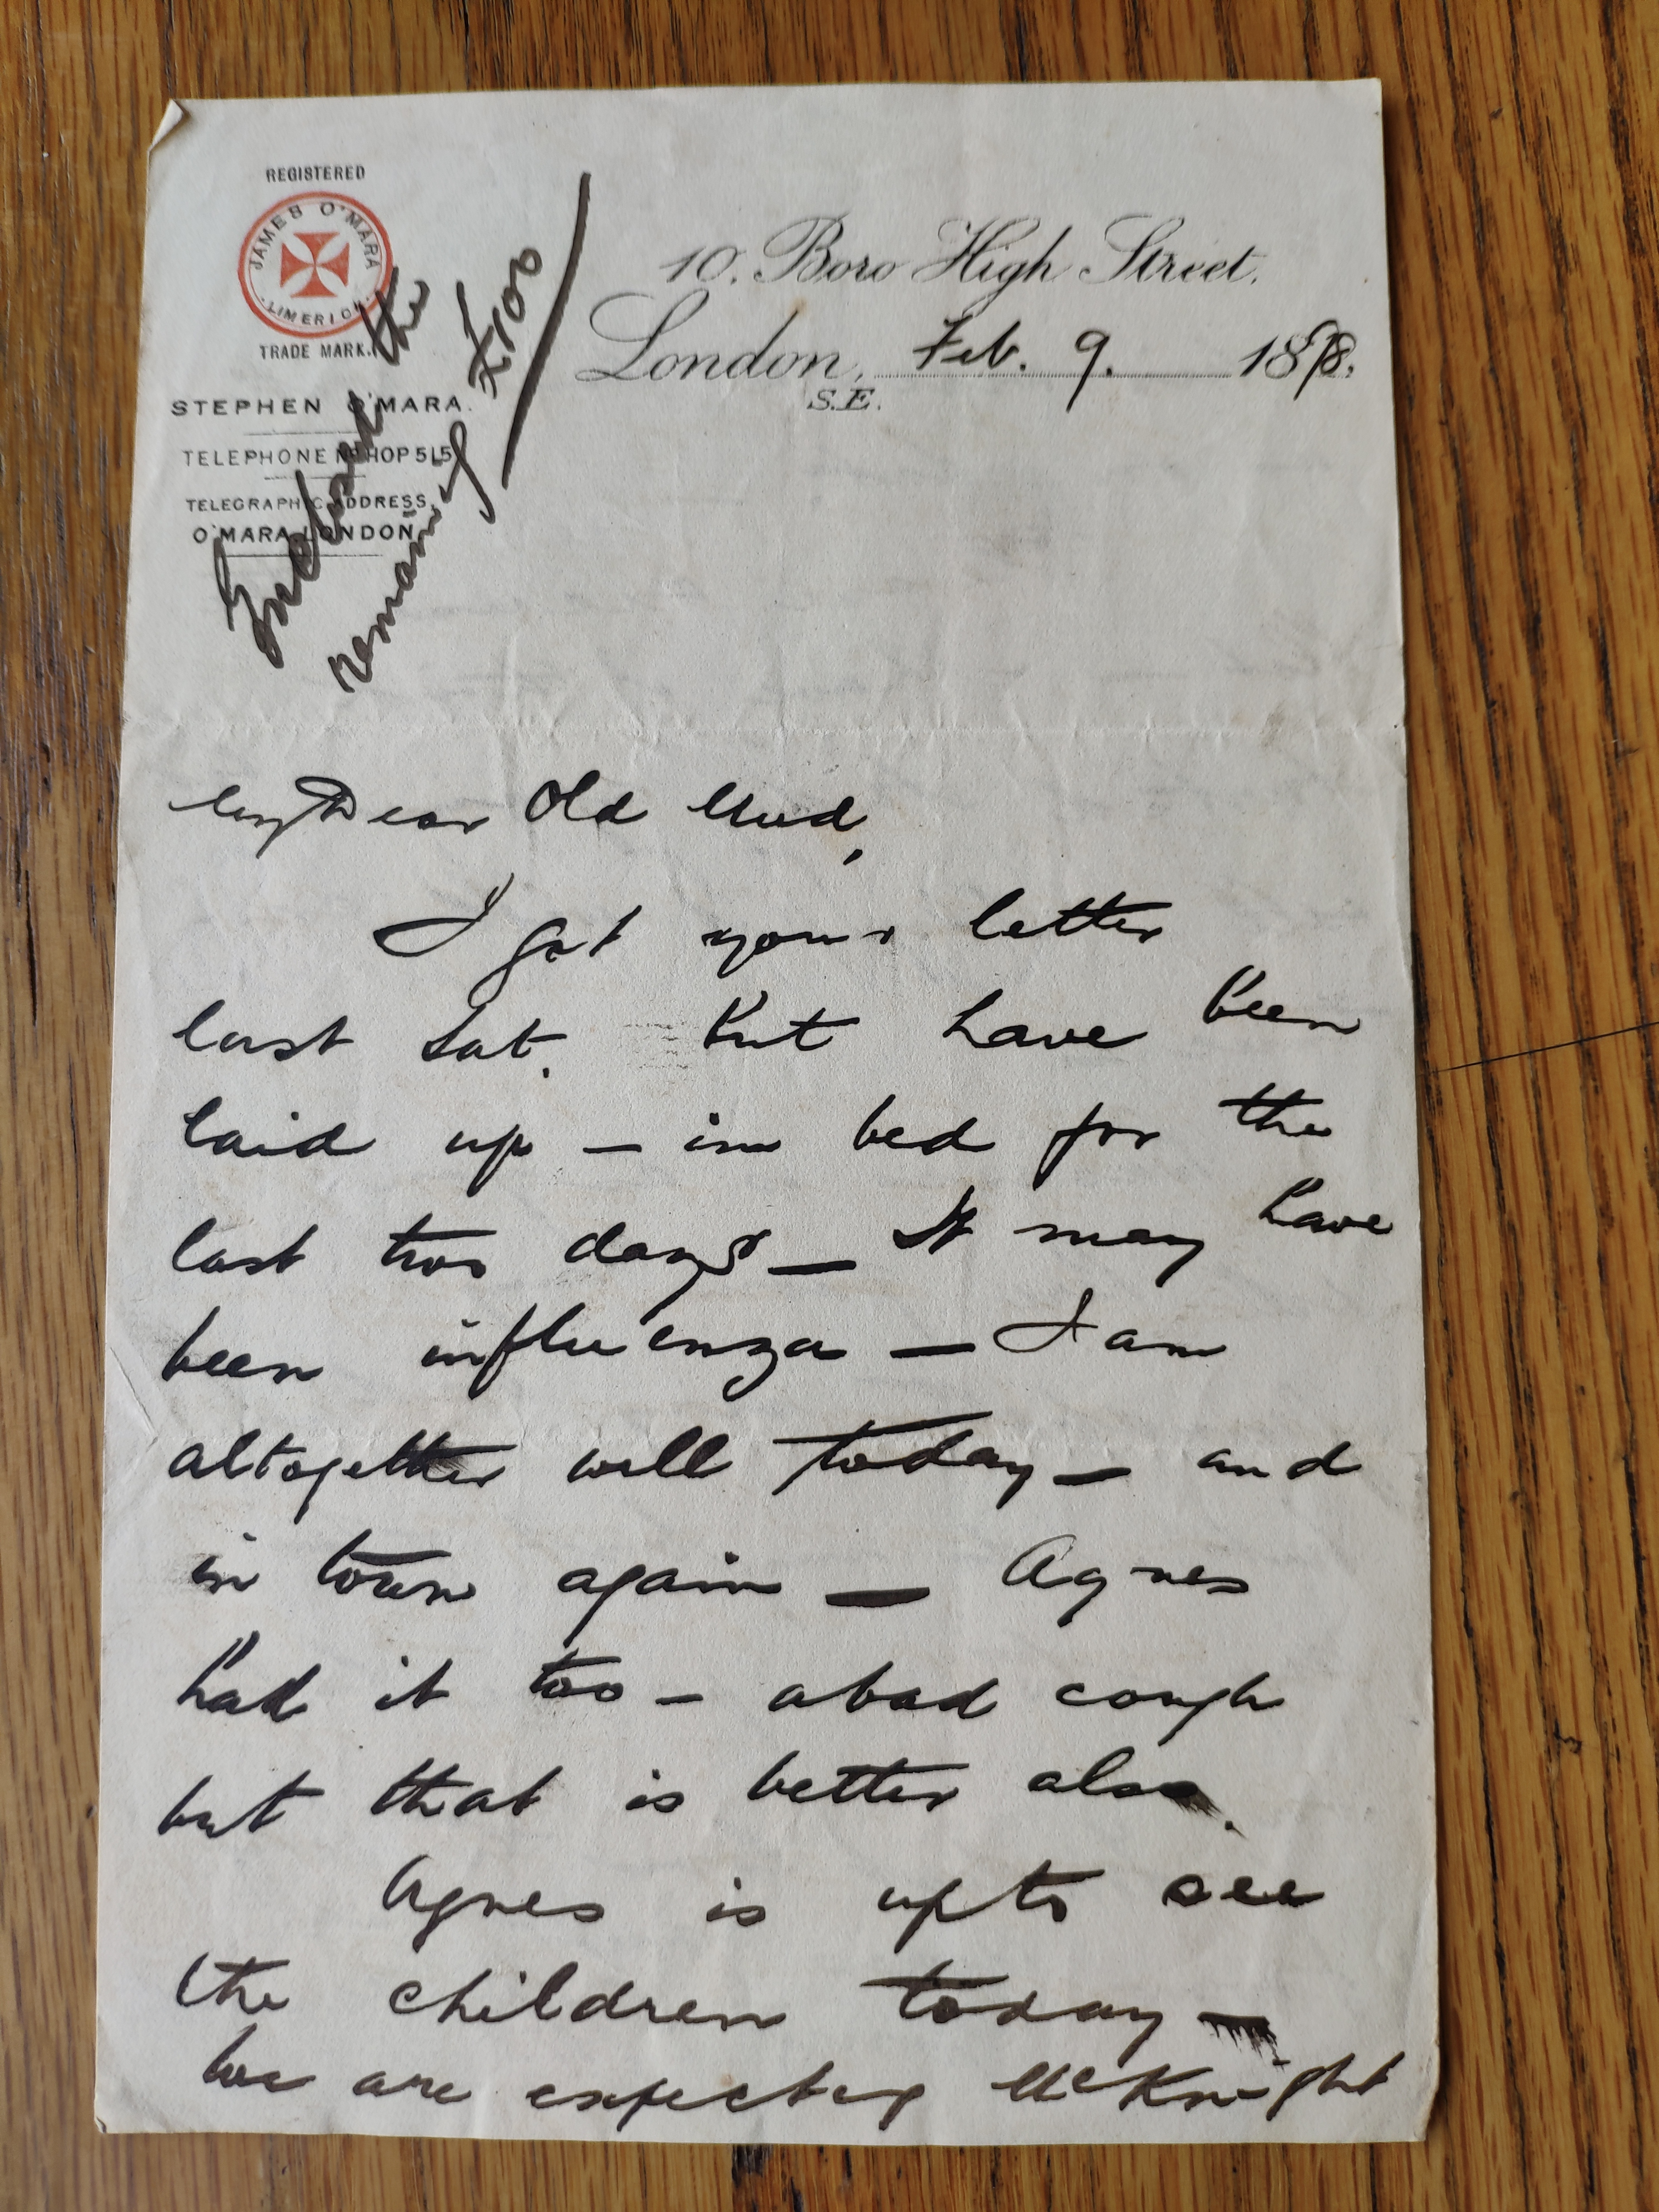 REGISTERED
JAMES O'MARA
LIMERICK
TRADE MARK.
STEPHEN O'MARA.
TELEPHONE No HOP 515
TELEGRAPHIC ADDRESS,
O'MARA LONDON
Enclosed the
remaining £100
10. Boro High Street.
London, Feb. 9. 1898.
S.E.
My Dear Old Mud,
I got your letter
last Sat. but have been
laid up – in bed for the
last two days – It may have
been influenza – I am
altogether well today – and
in town again – Agnes
had it too – a bad cough
but that is better also.
Agnes is up to see
the children today –
we are expecting McKnight